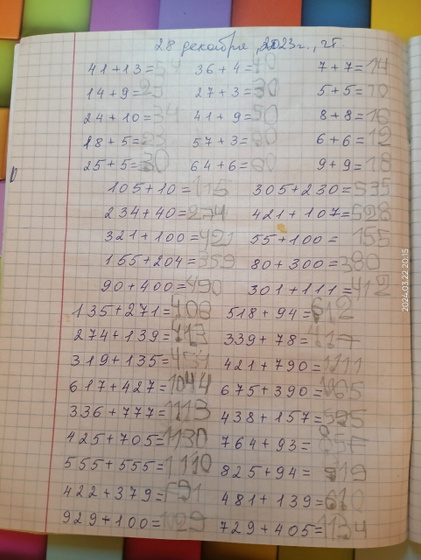 28 декабря, 2023г., чт
41+13=54 36+4=40 7+7=14
14+9=23 27+3=30 5+5=10
24+10=34 41+9=50 8+8=16
18+5=23 57+3=60 6+6=12
25+5=30 64+6=60 9+9=18
105+10=115 305+230=535
234+40=274 421+107=528
321+100=421 55+100=155
155+204=359 80+300=380
90+400=490 301+111=412
135+271=406 518+94=612
274+139=413 339+78=
319+135= 421+790=1211
617+427=1044 675+390=
336+777=1113 438+157=595
425+705=1130 764+93=
555+555=1110 825+94=919
422+379= 481+139=610
929+100=1029 729+405=1134
2024.03.22 20:15